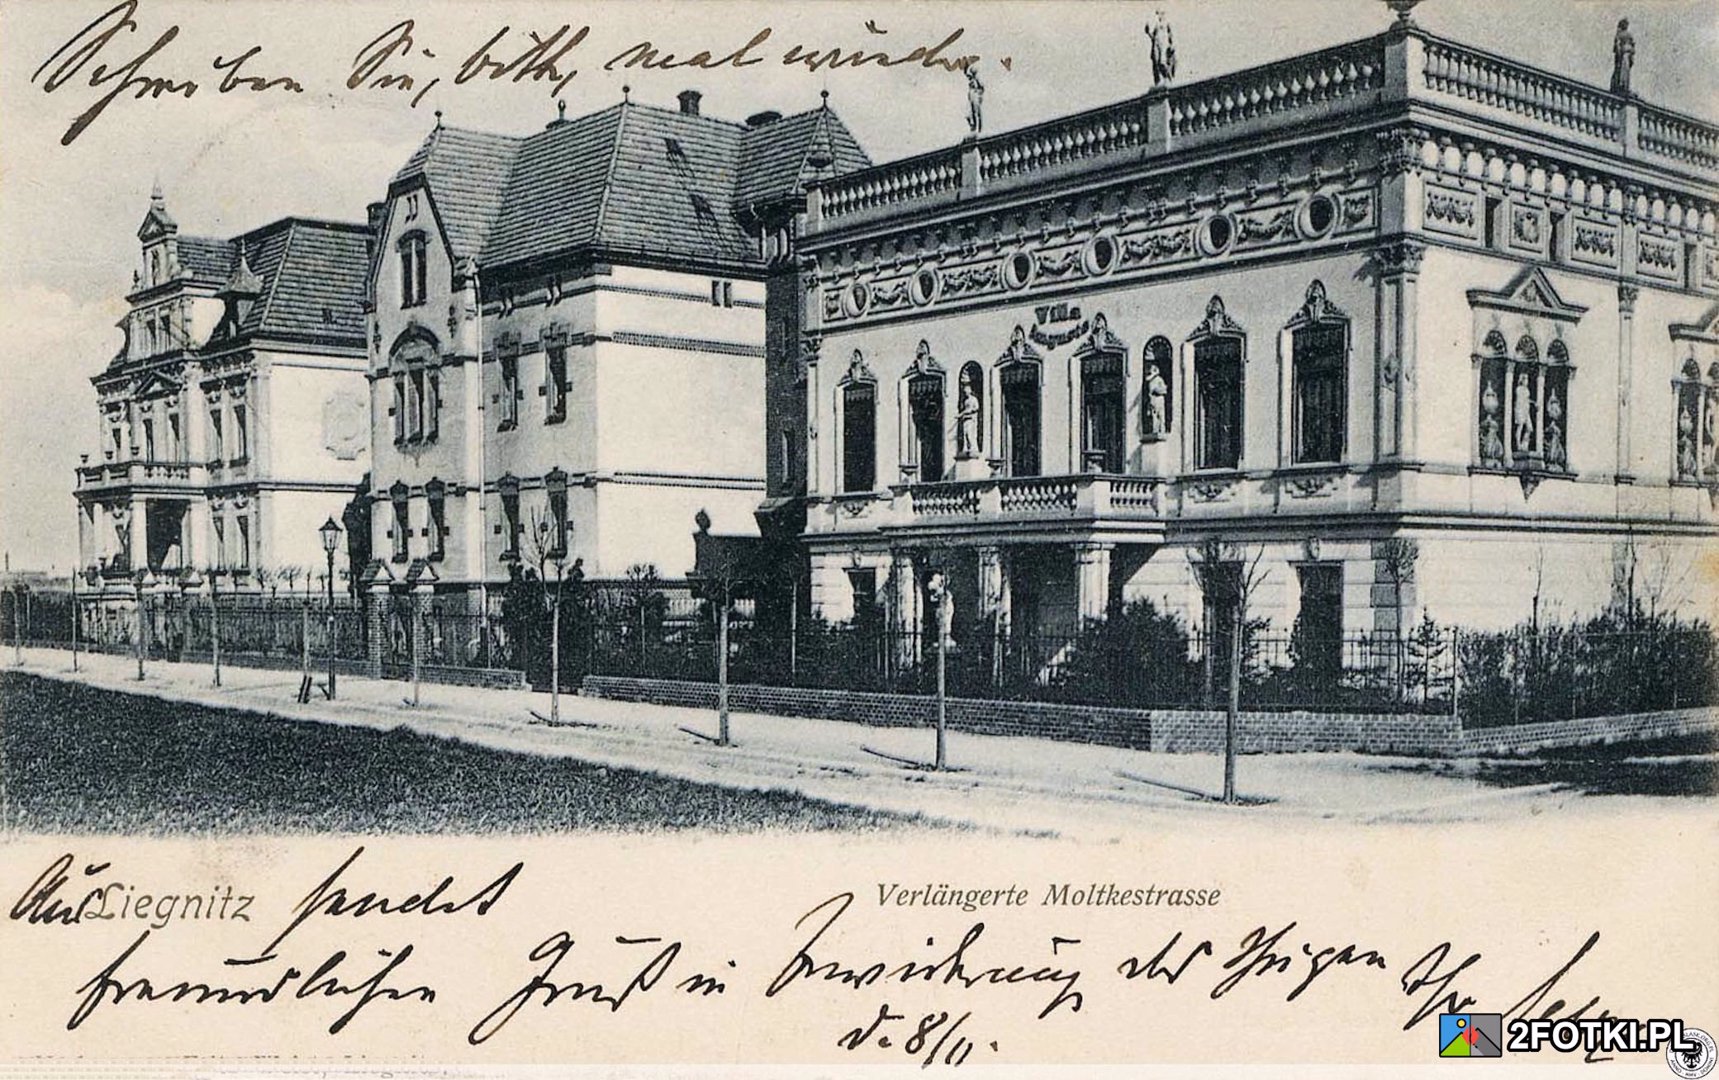 Schreiben Sie, bitte, mal wieder.
Villa
Augusta
Aus Liegnitz sendet
Verlängerte Moltkestrasse
freundlichen Gruß in Erwiderung des Ihrigen Ihr
d. 8/11.
2FOTKI.PL